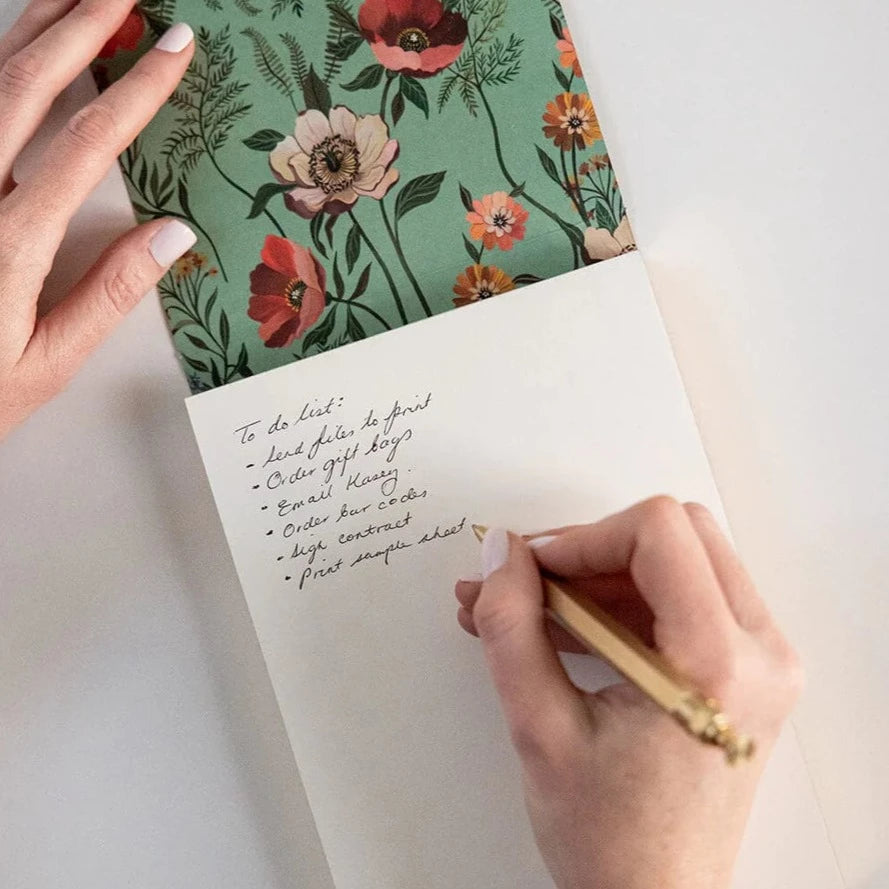 To do list:
- Send files to print
- Order gift bags
- Email Kasey.
- Order bar codes
- Sign contract
- Print sample sheet